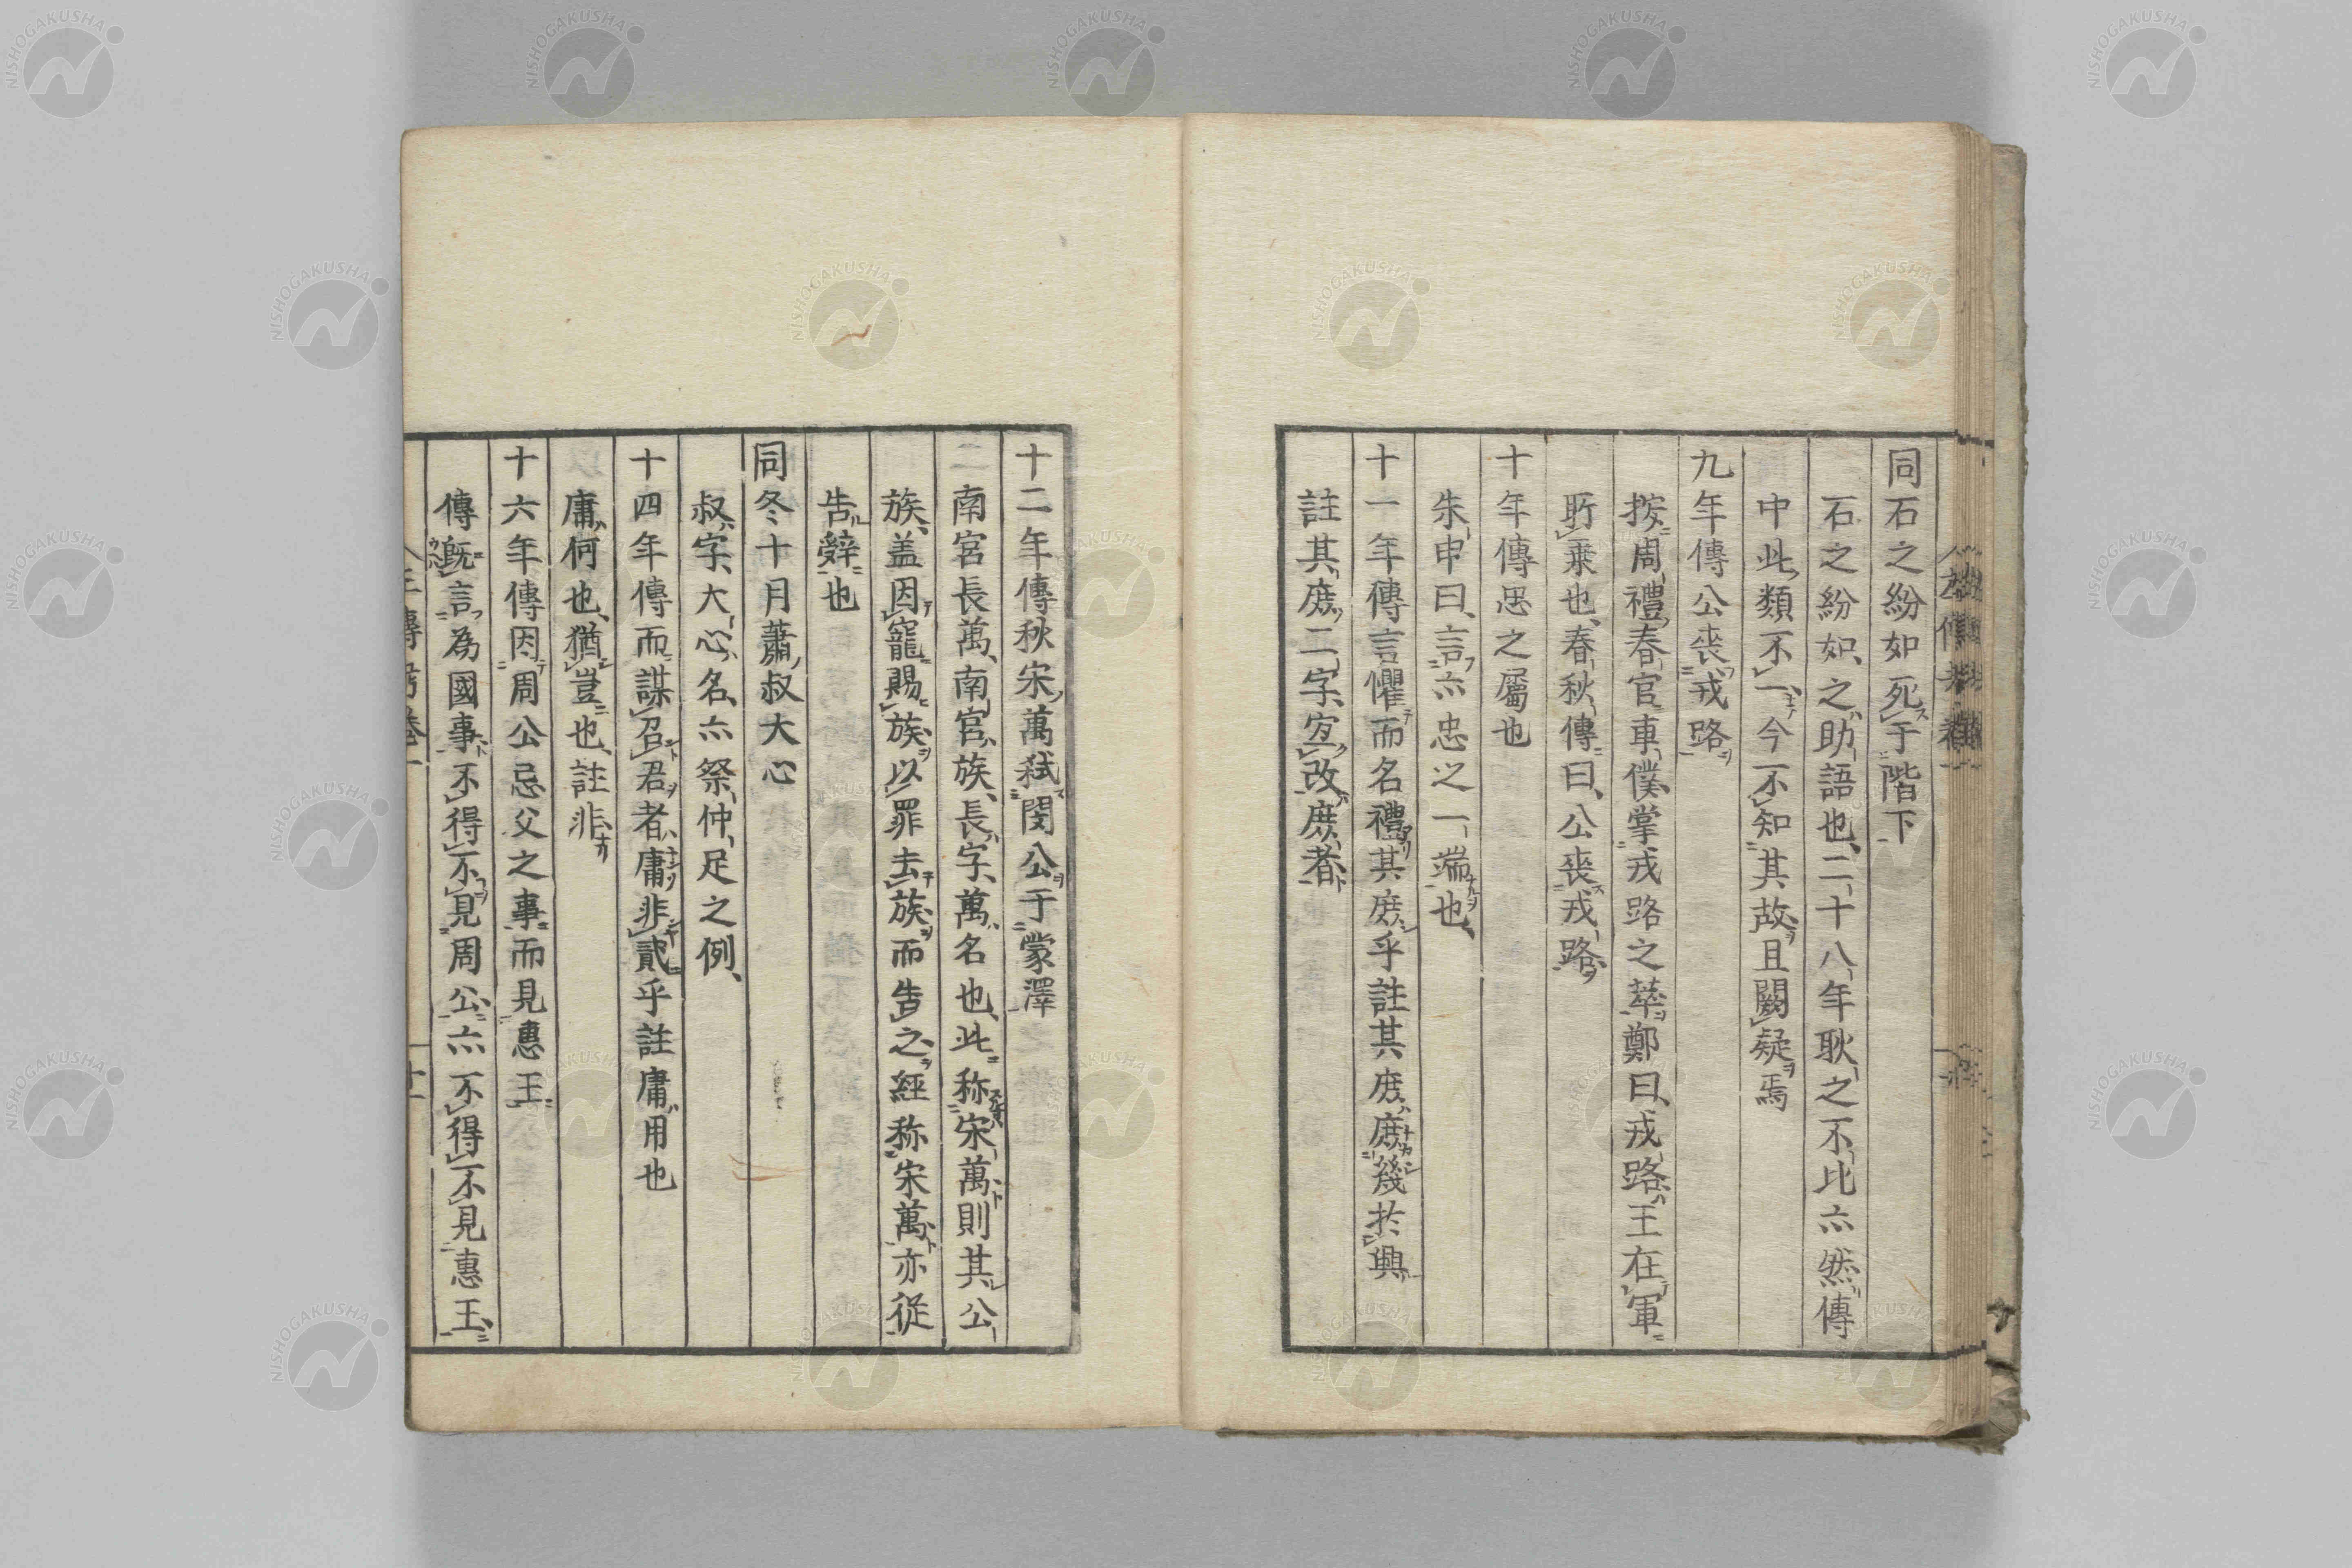 同石之紛如死于階下
石之紛如、之助語也、二十八年耿之不比亦然、傳
中此類不一、今不知其故、且闕疑焉
九年傳公喪戎路
按周禮春官車僕掌戎路之萃鄭曰、戎路、王在軍
所乘也、春秋傳曰、公喪戎路、
十年傳忠之屬也
朱申曰、言亦忠之一端也、
十一年傳言懼而名禮其庶乎註其庶、庶幾於興
註其庶二字、宜改庶者、
十二年傳秋宋萬弒閔公于蒙澤
南宮長萬、南官、族、長、字、萬、名也、此称宋萬則其公
族、盖因寵賜族以罪去族而告之、經称宋萬亦從
告辭也
同冬十月蕭叔大心
叔、字、大心、名、亦祭仲足之例、
十四年傳而謀召君者、庸非貳乎註庸用也
庸、何也、猶豈也、註非
十六年傳因周公忌父之事而見惠王
傳既言為國事不得不見周公亦不得不見惠王、
NISHOGAKUSHA